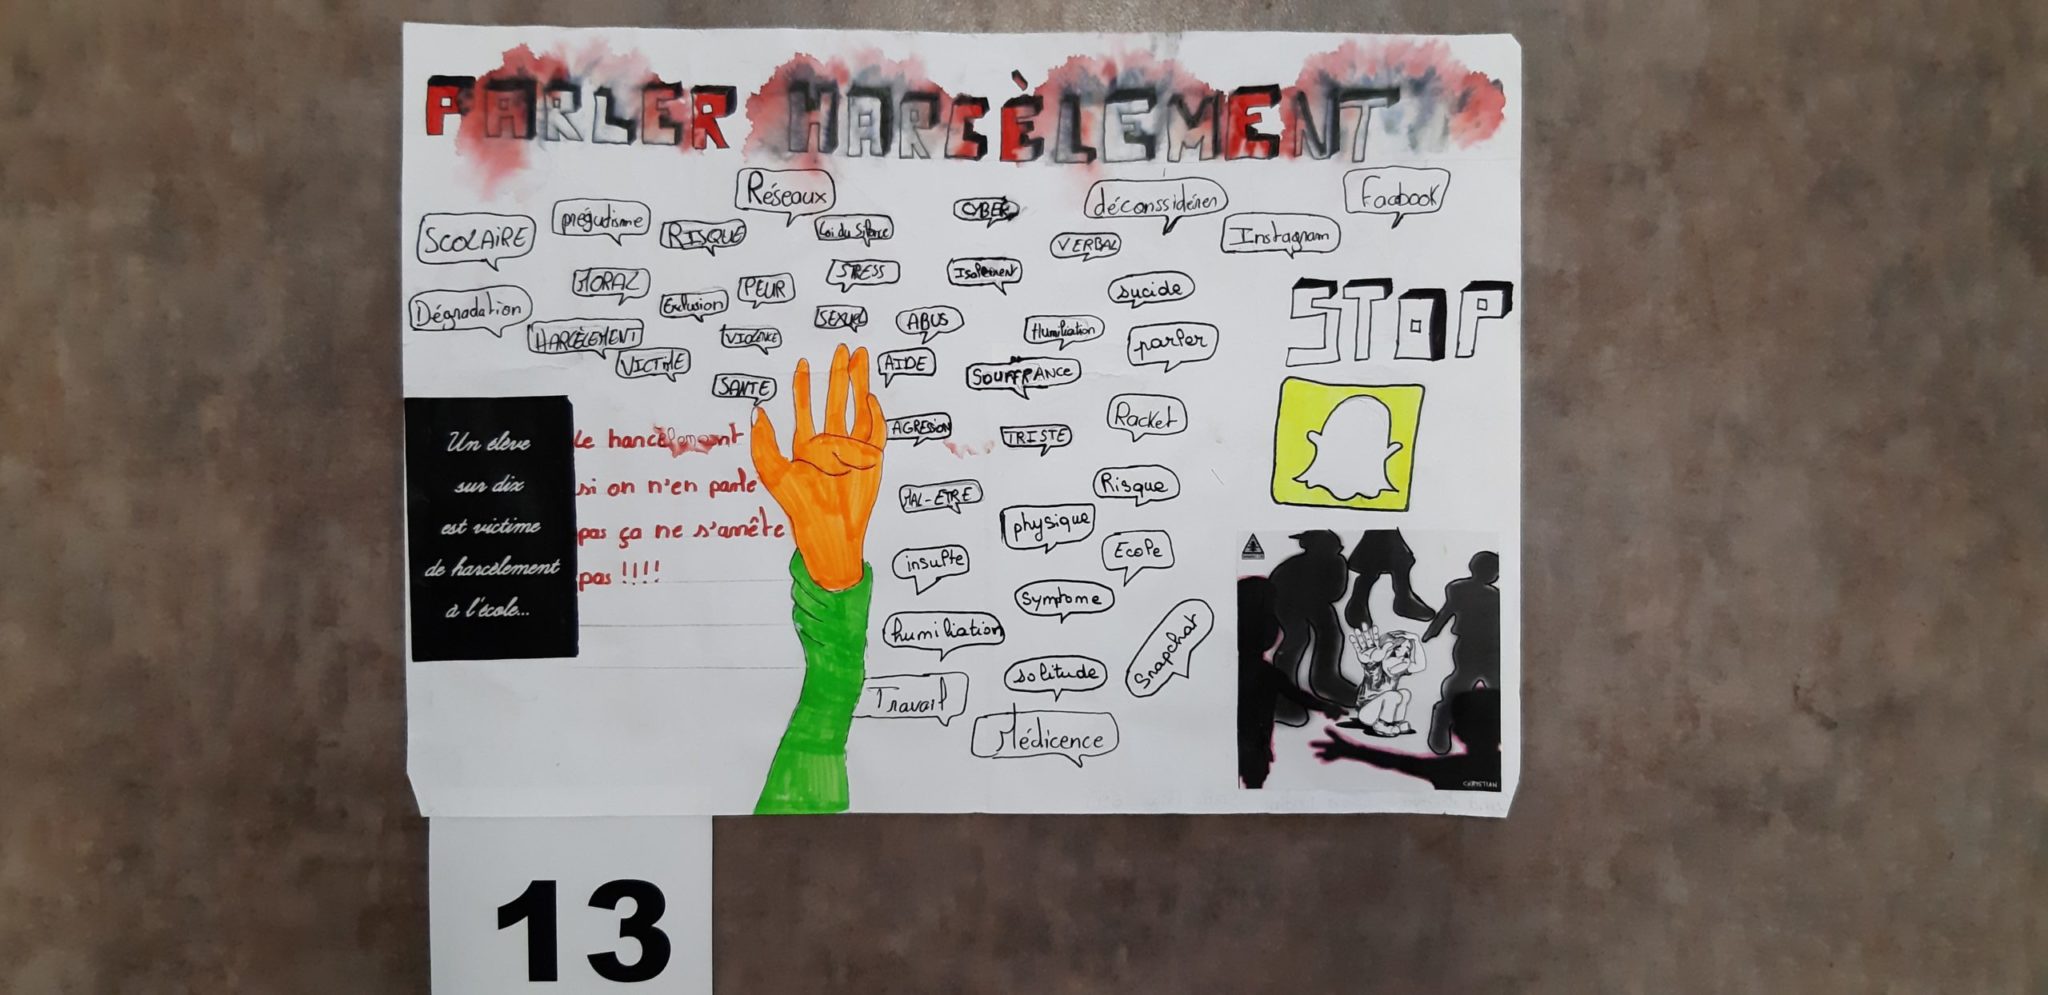 PARLER HARCÈLEMENT
Réseaux
CYBER
déconssidérer
Facbook
SCOLAIRE
prégudisme
RISQUE
Loi du Silence
VERBAL
Instagram
MORAL
PEUR
STRESS
Isolement
sucide
STOP
Dégradation
Exclusion
SEXUEL
ABUS
Humiliation
parler
HARCÈLEMENT
VICTIME
VIOLENCE
AIDE
SOUFFRANCE
SANTE
AGRESSION
TRISTE
Racket
Un élève
sur dix
est victime
de harcèlement
à l'école...
Le harcèlement
si on n'en parle
pas ça ne s'arrête
pas !!!!
MAL-ETRE
Risque
physique
Ecole
insulte
symptome
humiliation
Snapchat
solitude
Travail
Médicence
CHRISTIAN
13